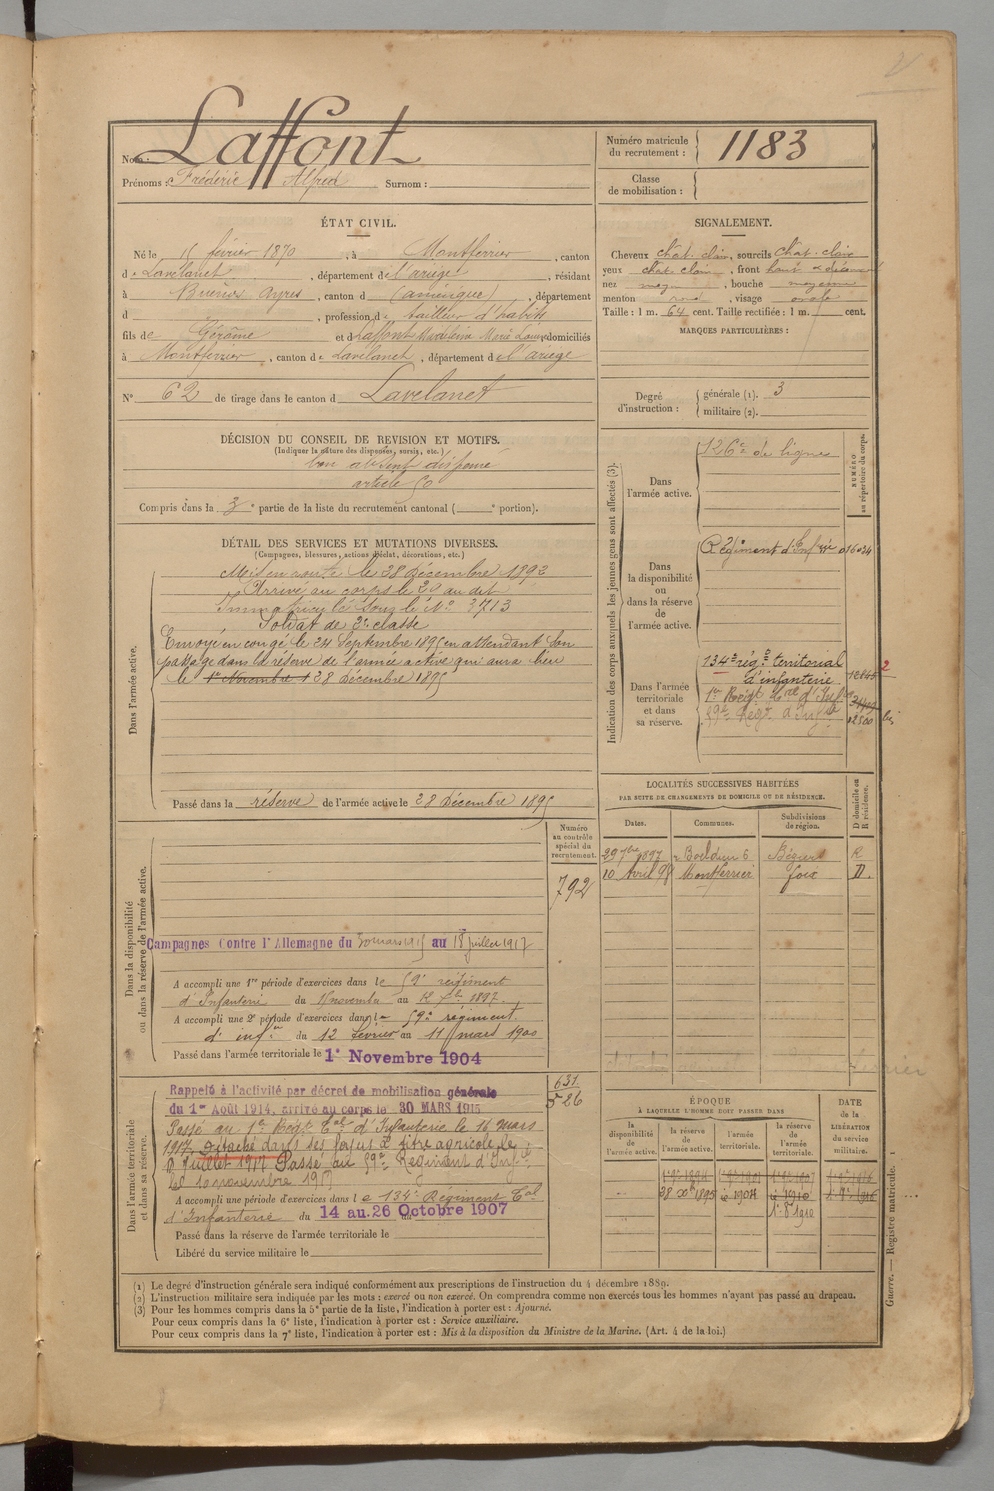 Nom : Laffont
Prénoms : Frédéric Alfred Surnom :
Numéro matricule du recrutement : 1183
Classe de mobilisation :
ÉTAT CIVIL.
Né le 15 février 1870, à Montferrier, canton
de Lavelanet, département de l'ariege, résidant
à Buenos Ayres, canton d (amérique), département
d , profession de tailleur d'habits
fils de Gérôme et de Laffont Madeleine Marie Louise domiciliés
à Montferrier, canton de Lavelanet, département de l'ariege
N° 62 de tirage dans le canton d Lavelanet
SIGNALEMENT.
Cheveux chat. clair, sourcils chat. clair
yeux chat. clair, front haut
nez moyen, bouche moyenne
menton rond, visage ovale
Taille : 1 m. 64 cent. Taille rectifiée : 1 m. cent.
MARQUES PARTICULIÈRES :
Degré d'instruction : générale (1). 3
militaire (2).
DÉCISION DU CONSEIL DE REVISION ET MOTIFS.
(Indiquer la nature des dispenses, sursis, etc.)
bon absent dispensé
article 50
Compris dans la 3e partie de la liste du recrutement cantonal ( e portion).
DÉTAIL DES SERVICES ET MUTATIONS DIVERSES.
(Campagnes, blessures, actions d'éclat, décorations, etc.)
Dans l'armée active.
Mis en route le 28 Décembre 1892
Arrivé au corps le 29 au dit
Immatriculé sous le N° 3713
Soldat de 2e classe
Envoyé en congé le 24 Septembre 1895 en attendant son
passage dans la réserve de l'armée active qui aura lieu
le 1er Novembre 1 28 décembre 1895
Passé dans la réserve de l'armée active le 28 Décembre 1895
Indication des corps auxquels les jeunes gens sont affectés (3).
NUMÉRO au répertoire du corps.
Dans l'armée active.
126e de ligne
Dans la disponibilité ou dans la réserve de l'armée active.
Régiment d'Infrie 01634
Dans l'armée territoriale et dans sa réserve.
134e rég.t territorial
d'infanterie
1er Régt Col d'Infie
59e Régt d'Infie 02500 bis
2
LOCALITÉS SUCCESSIVES HABITÉES
PAR SUITE DE CHANGEMENTS DE DOMICILE OU DE RÉSIDENCE.
Dates. Communes. Subdivisions de région. D domicile ou R résidence.
29 7bre 1897 Béziers R
10 Avril 98 Montferrier foix D.
Dans la disponibilité ou dans la réserve de l'armée active.
Numéro au contrôle spécial du recrutement.
792
Campagnes Contre l'Allemagne du 30 mars 1915 au 18 juillet 1917
A accompli une 1re période d'exercices dans le 59e régiment
d'Infanterie du novembre au 12 Xbre 1897
A accompli une 2e période d'exercices dans le 59e régiment
d'inf.ie du 12 février au 11 mars 1900
Passé dans l'armée territoriale le 1er Novembre 1904
Dans l'armée territoriale et dans sa réserve.
631
526
Rappelé à l'activité par décret de mobilisation générale
du 1er Août 1914, arrivé au corps le 30 MARS 1915
Passé au 1er Régt Cal d'Infanterie le 16 mars
1917. Détaché dans ses foyers à titre agricole le
8 Juillet 1917 Passé au 59e Régiment d'Infie
le 10 novembre 1917
A accompli une période d'exercices dans le 134e Régiment Cal
d'Infanterie du 14 au 26 Octobre 1907
Passé dans la réserve de l'armée territoriale le
Libéré du service militaire le
ÉPOQUE
À LAQUELLE L'HOMME DOIT PASSER DANS
la disponibilité de l'armée active. la réserve de l'armée active. l'armée territoriale. la réserve de l'armée territoriale.
DATE de la LIBÉRATION du service militaire.
28 Xbre 1895
Guerre. — Registre matricule. 1
(1) Le degré d'instruction générale sera indiqué conformément aux prescriptions de l'instruction du 4 décembre 1889.
(2) L'instruction militaire sera indiquée par les mots : exercé ou non exercé. On comprendra comme non exercés tous les hommes n'ayant pas passé au drapeau.
(3) Pour les hommes compris dans la 5e partie de la liste, l'indication à porter est : Ajourné.
Pour ceux compris dans la 6e liste, l'indication à porter est : Service auxiliaire.
Pour ceux compris dans la 7e liste, l'indication à porter est : Mis à la disposition du Ministre de la Marine. (Art. 4 de la loi.)